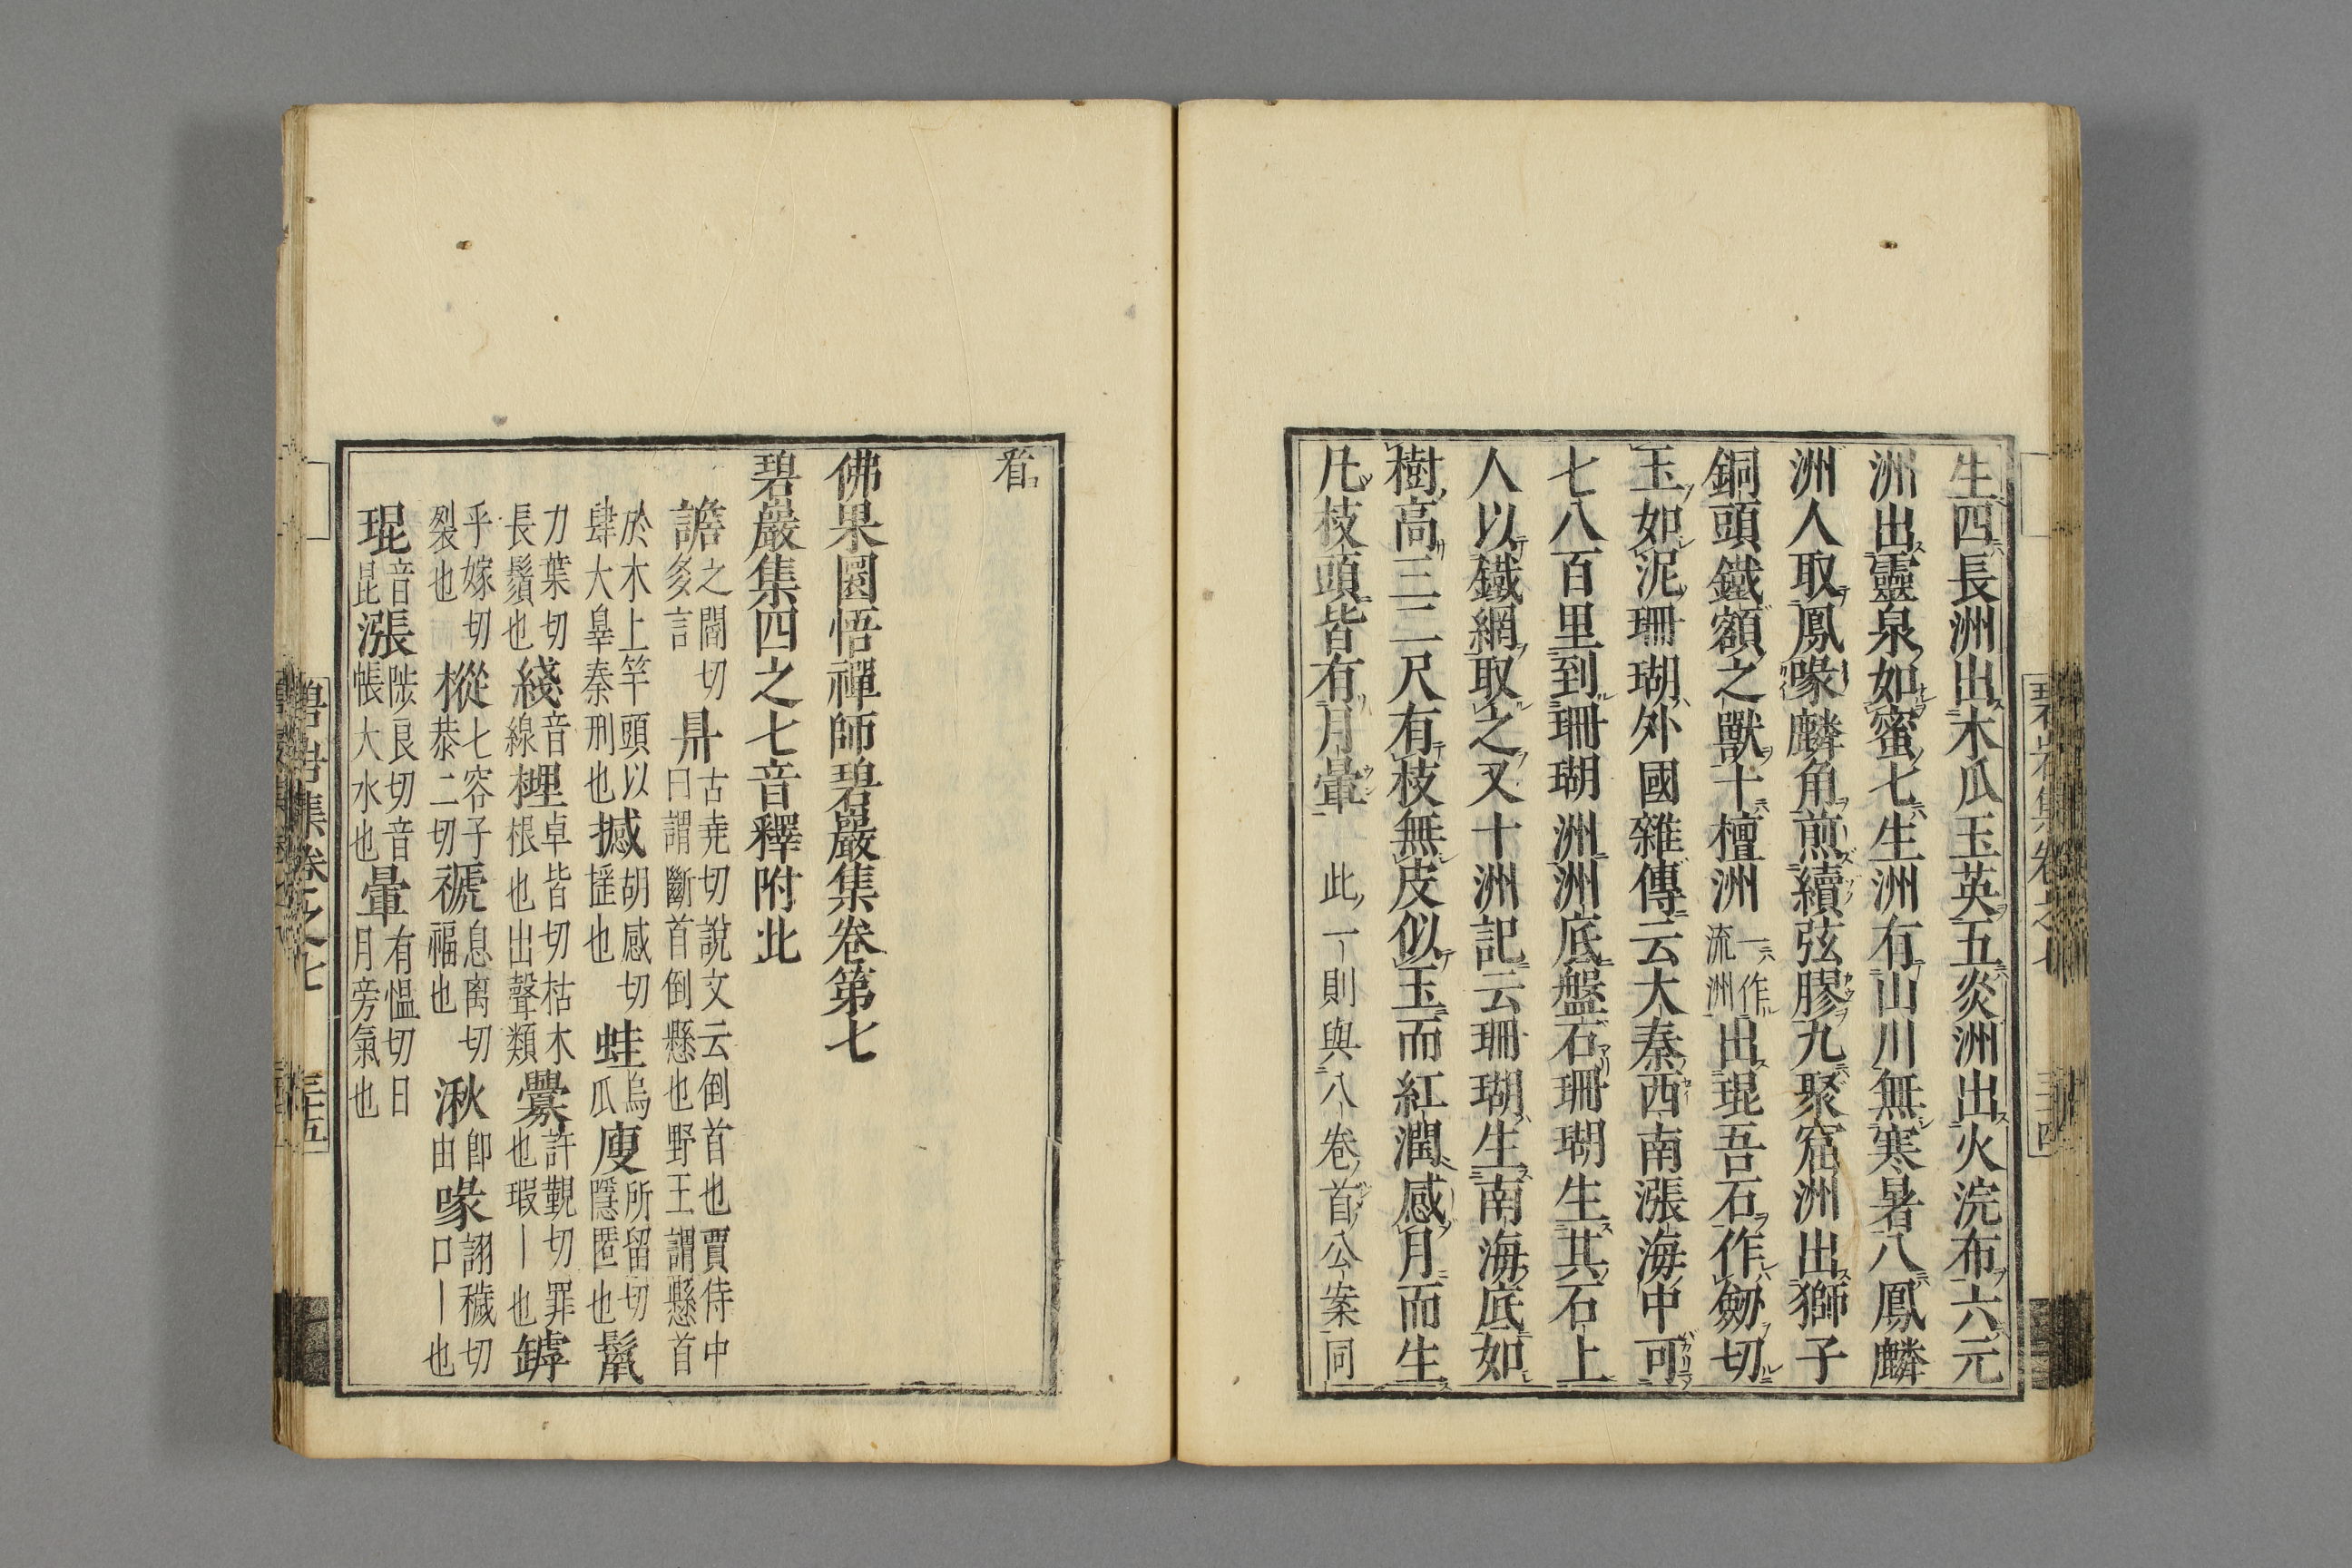 生四長洲出木瓜玉英五炎洲出火浣布六元
洲出靈泉如蜜七生洲有山川無寒暑八鳳麟
洲人取鳳喙麟角煎續弦膠九聚窟洲出獅子
銅頭鐵額之獸十檀洲一作流洲出琨吾石作劒切
玉如泥珊瑚外國雜傳云大秦西南漲海中可
七八百里到珊瑚洲洲底盤石珊瑚生其石上
人以鐵網取之又十洲記云珊瑚生南海底如
樹高三二尺有枝無皮似玉而紅潤感月而生
凡枝頭皆有月暈此一則與八卷首公案同
看
佛果圜悟禪師碧巖集卷第七
碧巖集四之七音釋附此
譫之閻切多言㬎古堯切說文云倒首也賈侍中曰謂斷首倒懸也野王謂懸首
於木上竿頭以肆大辠秦刑也撼胡感切搖也蛙烏瓜廋所留切隱匿也鬣
力葉切長鬚也綫音線榸卓皆切枯木根也出聲類釁許覲切罪也瑕丨也罅
乎嫁切裂也樅七容子恭二切禠息离切福也湫卽由喙詡穢切口丨也
琨音昆漲陟良切音帳大水也暈有慍切日月旁氣也
碧岩集卷之七
三十五